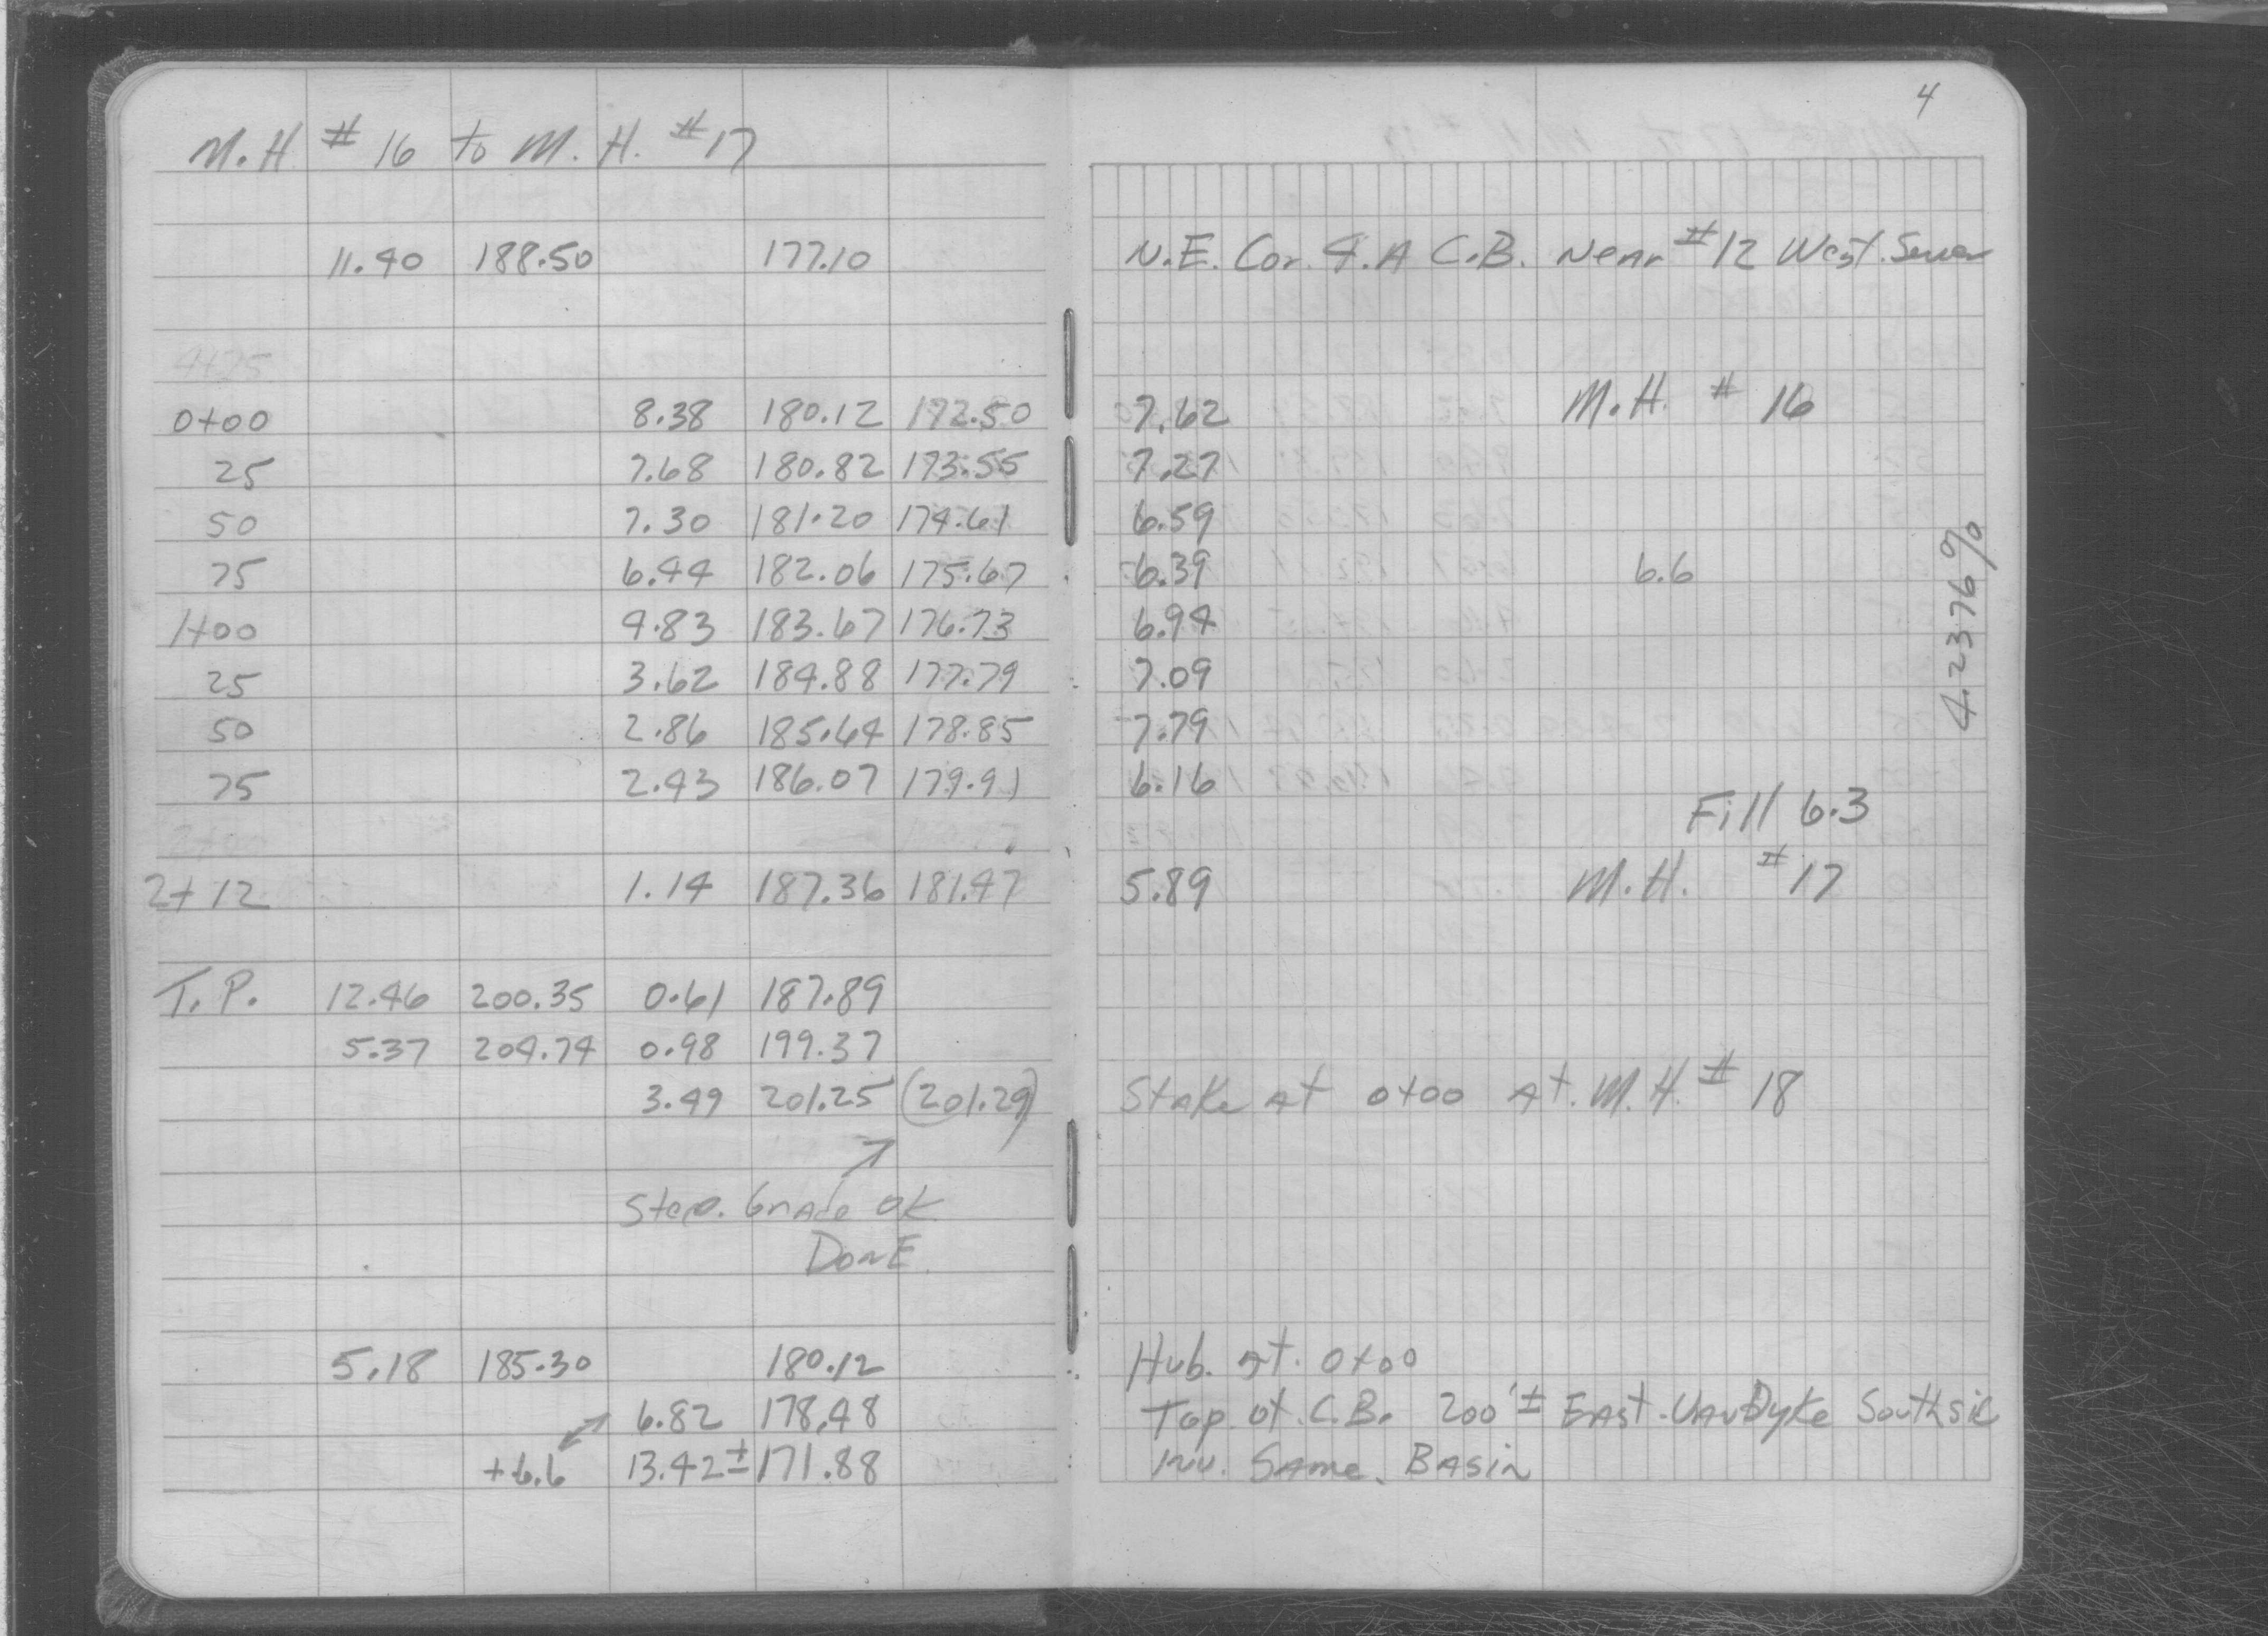 4
M.H # 16 to M.H. #17
11.40 188.50 177.10 N.E. Cor. F.A C.B. Near #12 West. Sewer
4+25
0+00 8.38 180.12 172.50 7.62 M.H. # 16
25 7.68 180.82 173.55 7.27
50 7.30 181.20 174.61 6.59
75 6.44 182.06 175.67 6.39 6.6
1+00 4.83 183.67 176.73 6.94
25 3.62 184.88 177.79 7.09
50 2.86 185.64 178.85 7.79
75 2.43 186.07 179.91 6.16
4.2376%
Fill 6.3
2+12 1.14 187.36 181.47 5.89 M.H. #17
T.P. 12.46 200.35 0.61 187.89
5.37 204.74 0.98 199.37
3.49 201.25 (201.29) Stake at 0+00 At. M.H. # 18
Grade OK
DonE
5.18 185.30 180.12 Hub. at. 0+00
6.82 178.48 Top of C.B. 200'± EAst. VanDyke
+6.6 13.42± 171.88 Inv. Same. Basin